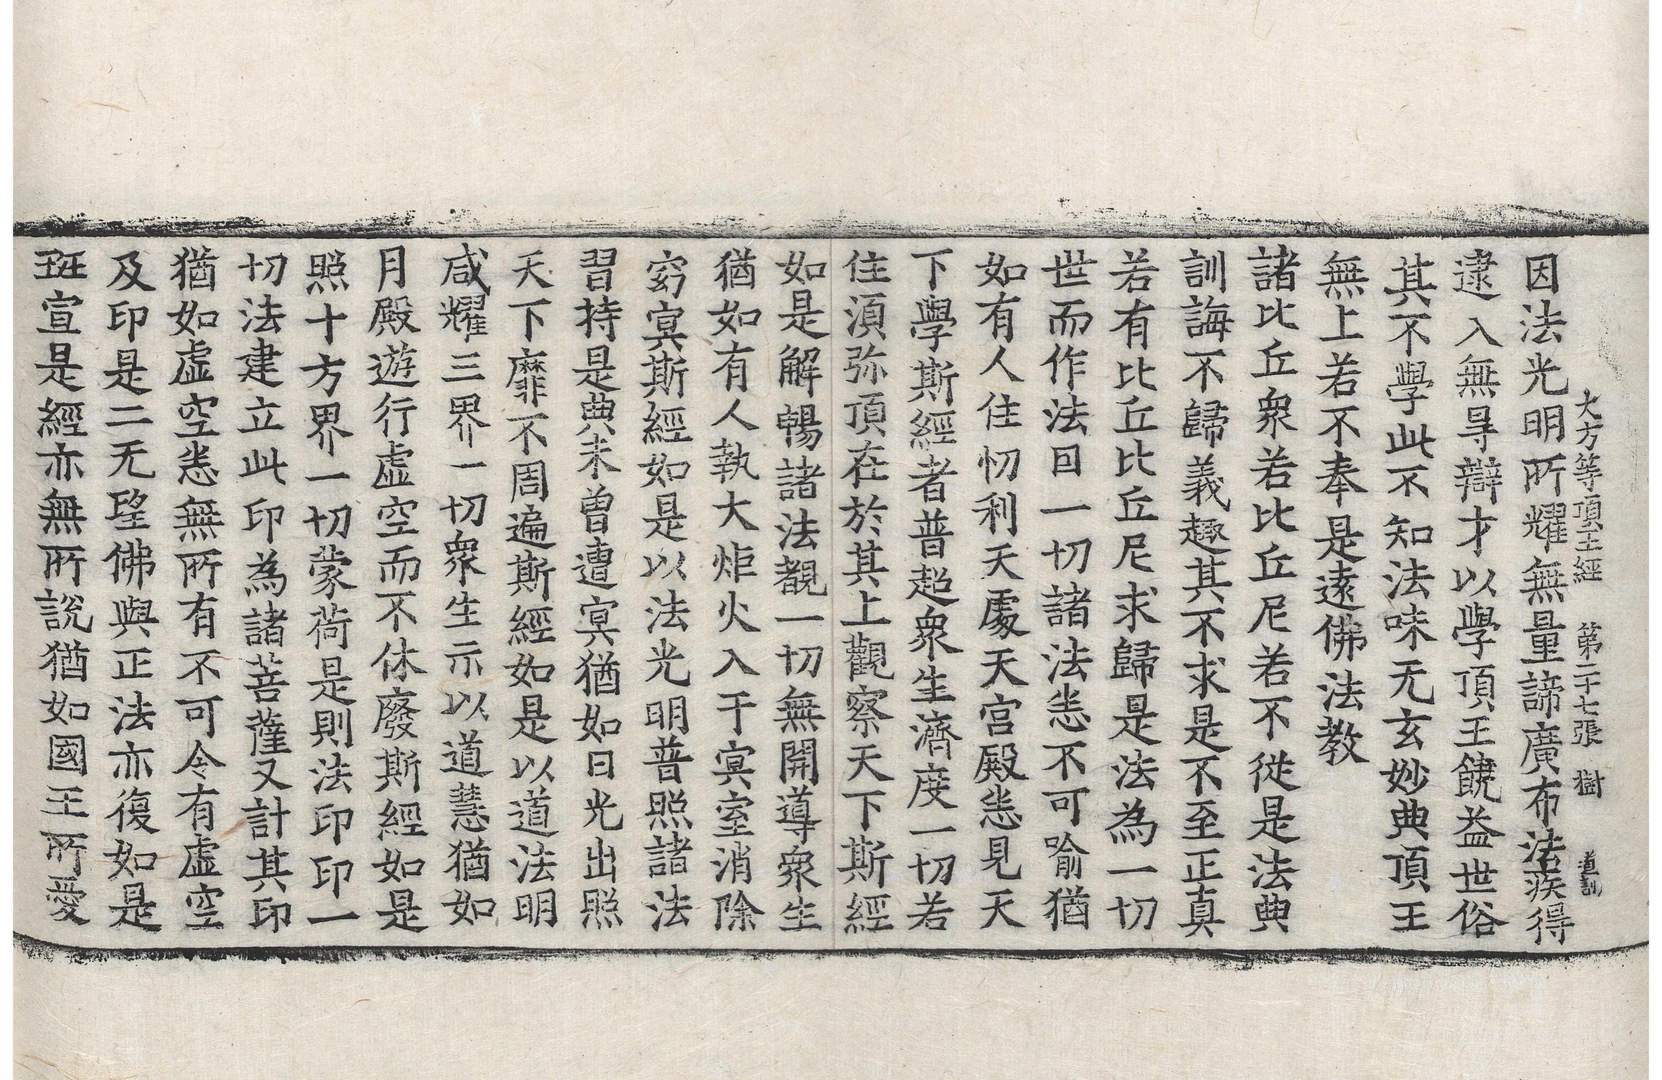 大方等頂王經　第二十七張　樹　道訓
因法光明所耀無量諦廣布法疾得
逮入無㝵辯才以學頂王饒益世俗
其不學此不知法味无玄妙典頂王
無上若不奉是遠佛法教
諸比丘衆若比丘尼若不從是法典
訓誨不歸義趣其不求是不至正真
若有比丘比丘尼求歸是法為一切
世而作法回一切諸法悉不可喻猶
如有人住忉利天處天宮殿悉見天
下學斯經者普超衆生濟度一切若
住湏弥頂在於其上觀察天下斯經
如是解暢諸法覩一切無開導衆生
猶如有人執大炬火入于𡨋室消除
窮𡨋斯經如是以法光明普照諸法
習持是典未曾遭𡨋猶如日光出照
天下靡不周遍斯經如是以道法明
咸耀三界一切衆生示以道慧猶如
月殿遊行虛空而不休廢斯經如是
照十方界一切蒙荷是則法印印一
切法建立此印為諸菩薩又計其印
猶如虛空悉無所有不可令有虛空
及印是二无望佛與正法亦復如是
班宣是經亦無所說猶如國王所愛